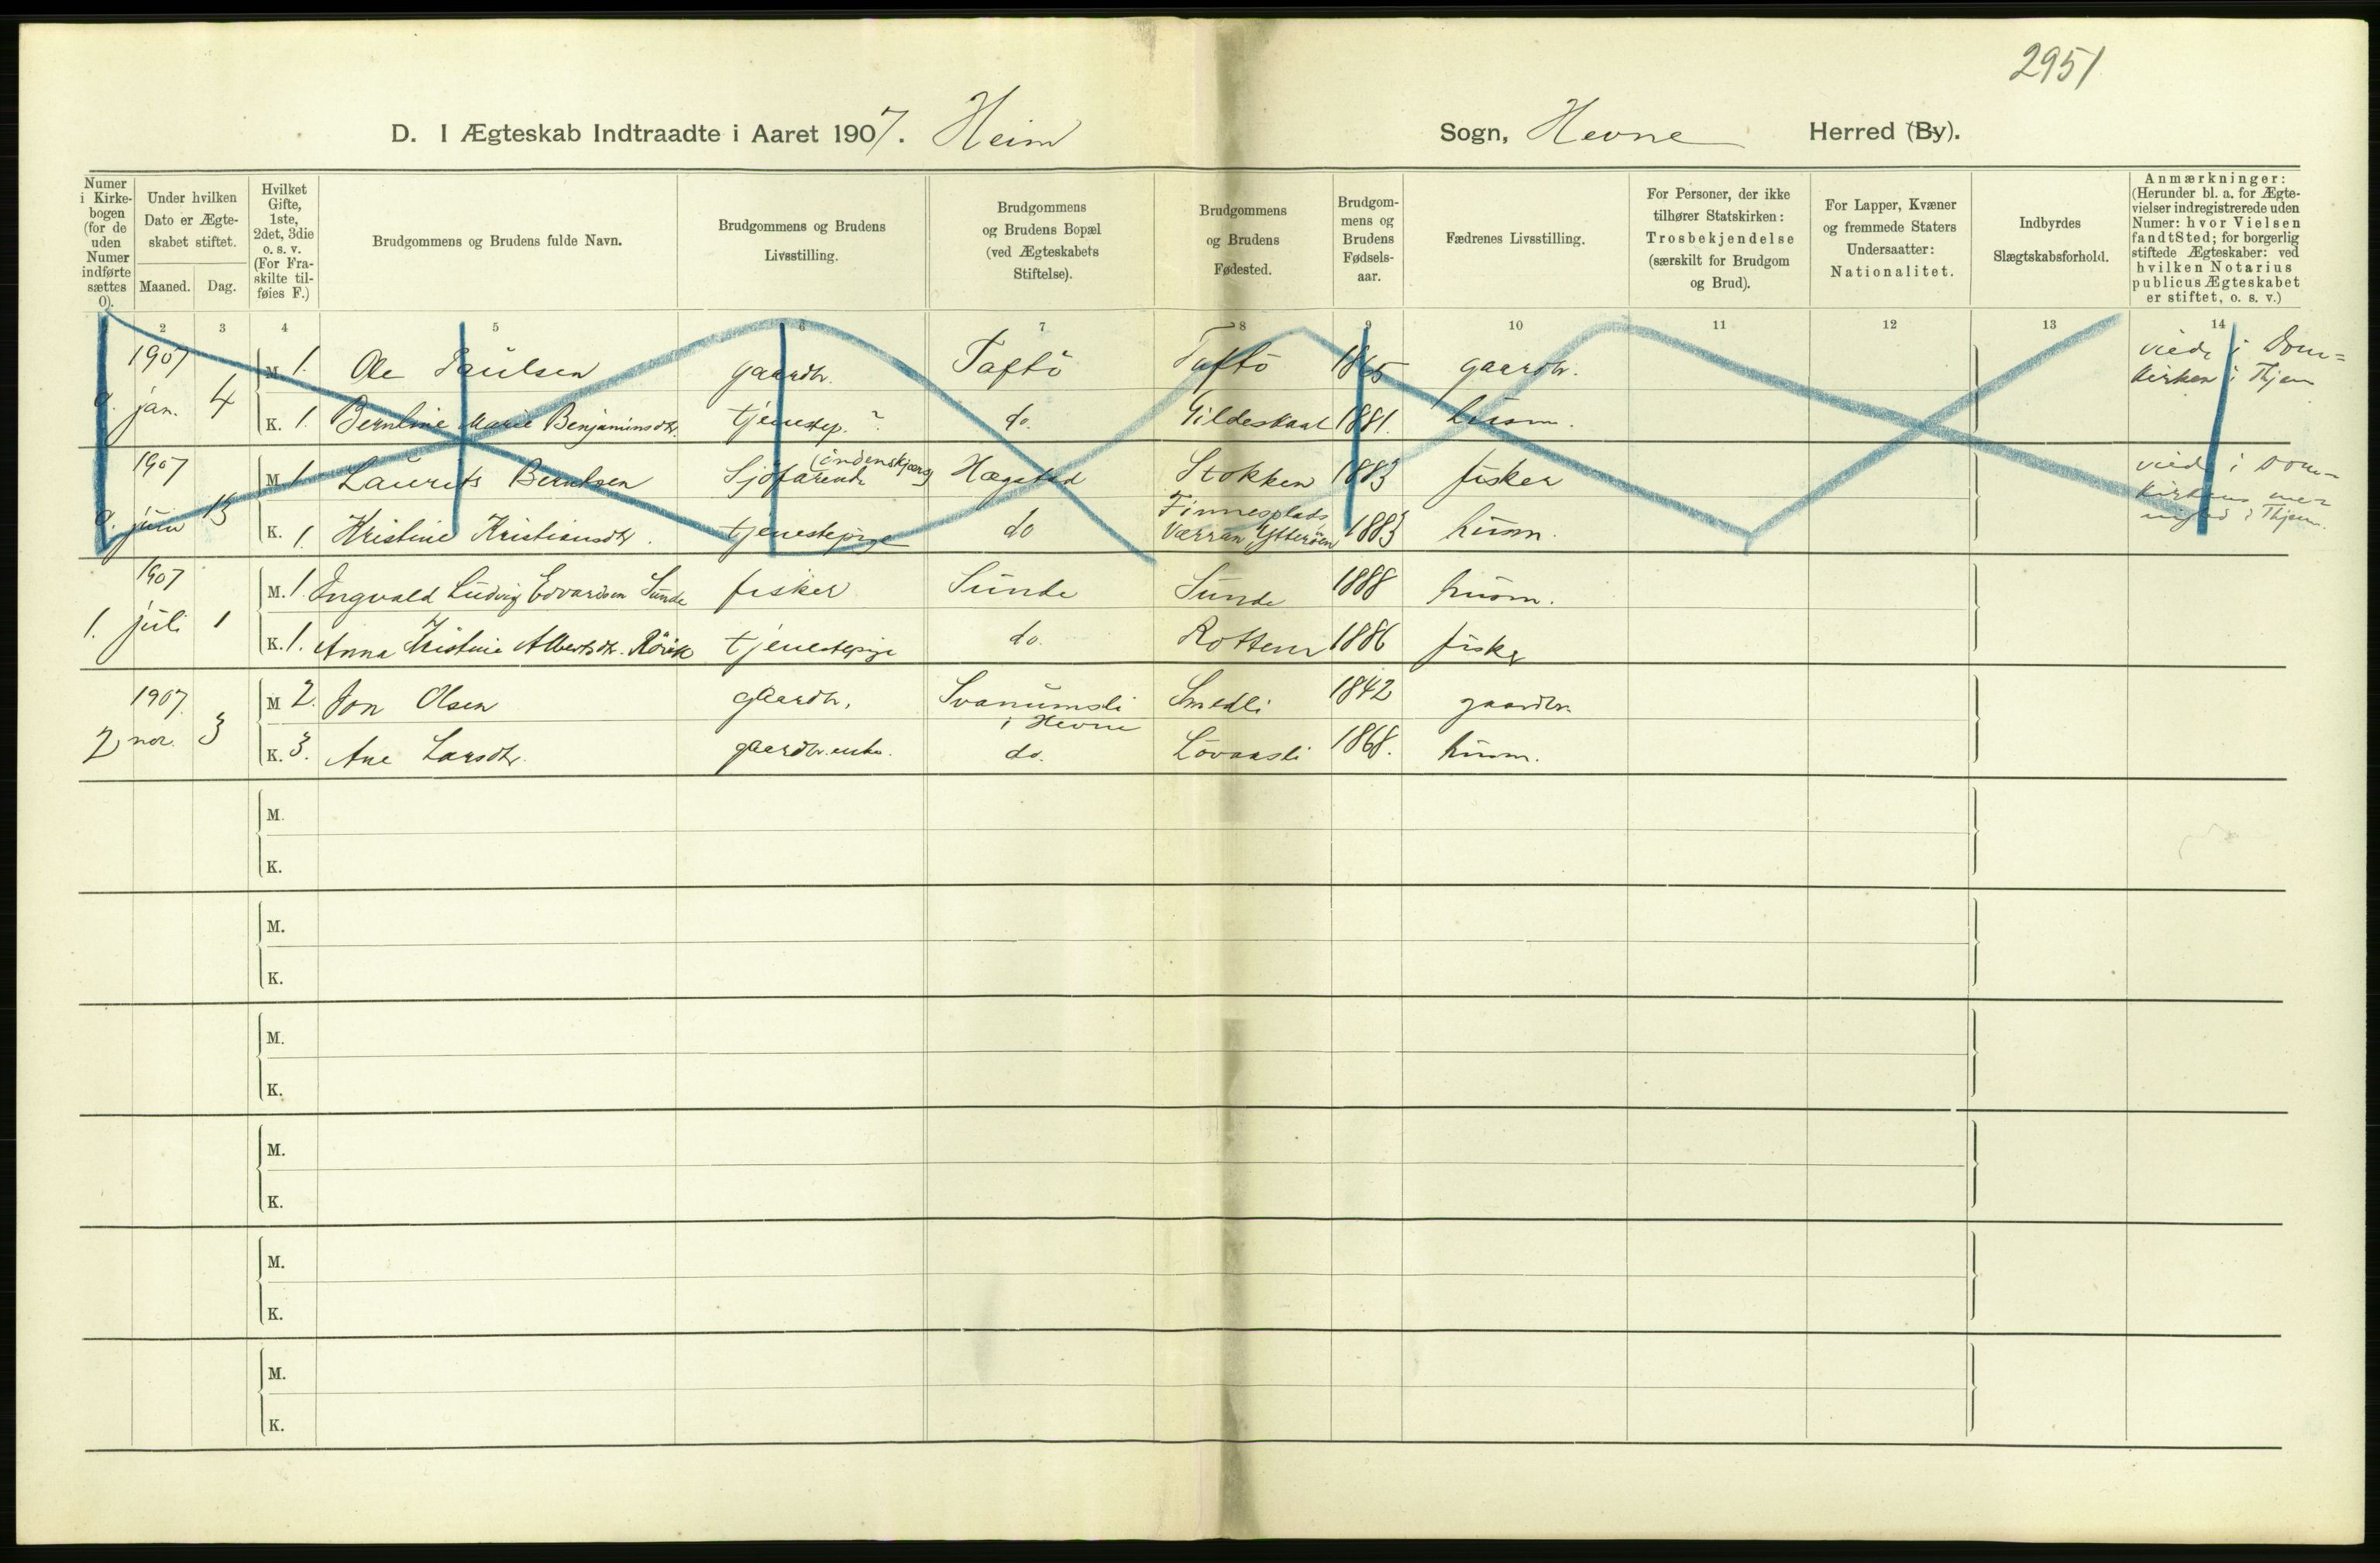 2951
D. I Ægteskab Indtraadte i Aaret 1907. Heim Sogn, Hevne Herred (By).
Numer i Kirke-bogen (for de uden Numer indførte sættes 0).
Under hvilken Dato er Ægte-skabet stiftet.
Maaned. Dag.
Hvilket Gifte, 1ste, 2det, 3die o. s. v. (For Fra-skilte til-føies F.)
Brudgommens og Brudens fulde Navn.
Brudgommens og Brudens Livsstilling.
Brudgommens og Brudens Bopæl (ved Ægteskabets Stiftelse).
Brudgommens og Brudens Fødested.
Brudgom-mens og Brudens Fødsels-aar.
Fædrenes Livsstilling.
For Personer, der ikke tilhører Statskirken: Trosbekjendelse (særskilt for Brudgom og Brud).
For Lapper, Kvæner og fremmede Staters Undersaatter: Nationalitet.
Indbyrdes Slægtskabsforhold.
Anmærkninger: (Herunder bl. a. for Ægte-vielser indregistrerede uden Numer: hvor Vielsen fandt Sted; for borgerlig stiftede Ægteskaber: ved hvilken Notarius publicus Ægteskabet er stiftet, o. s. v.)
2 3 4 5 6 7 8 9 10 11 12 13 14
1907 M 1. Ole Paulsen gaardbr. Taftö Taftö 1865 gaardbr. viede i Dom=
0. jan. 4 kirken i Thjem
K. 1. Berntine Marie Benjaminsdtr. tjenestep. ? do. Gildeskaal 1881. husm.
1907 M 1. Laurits Berntsen Sjöfarende (indenskjærs) Hægstad Stokken 1883 fisker viede i Dom-
0. juni 13 kirkens
K. 1. Kristine Kristiansdtr. tjenestepige do Finnesplads Værran, Ytterøen 1883 husm. i Thjem.
1907 M. 1. Ingvald Ludvig Edvardsen Sunde fisker Sunde Sunde 1888 husm.
1. juli 1
K. 1. Anna Kristine Albertsdtr. Rövik tjenestepige do. Rottem 1886 fisker
1907. M 2. Jon Olsen gaardbr. Svanumsli i Hevne Smedli 1842 gaardbr.
2 nov. 3
K. 3. Ane Larsdtr. gaardbr.enke. do. Lövaasli 1868. husm.
M.
K.
M.
K.
M.
K.
M.
K.
M.
K.
M.
K.